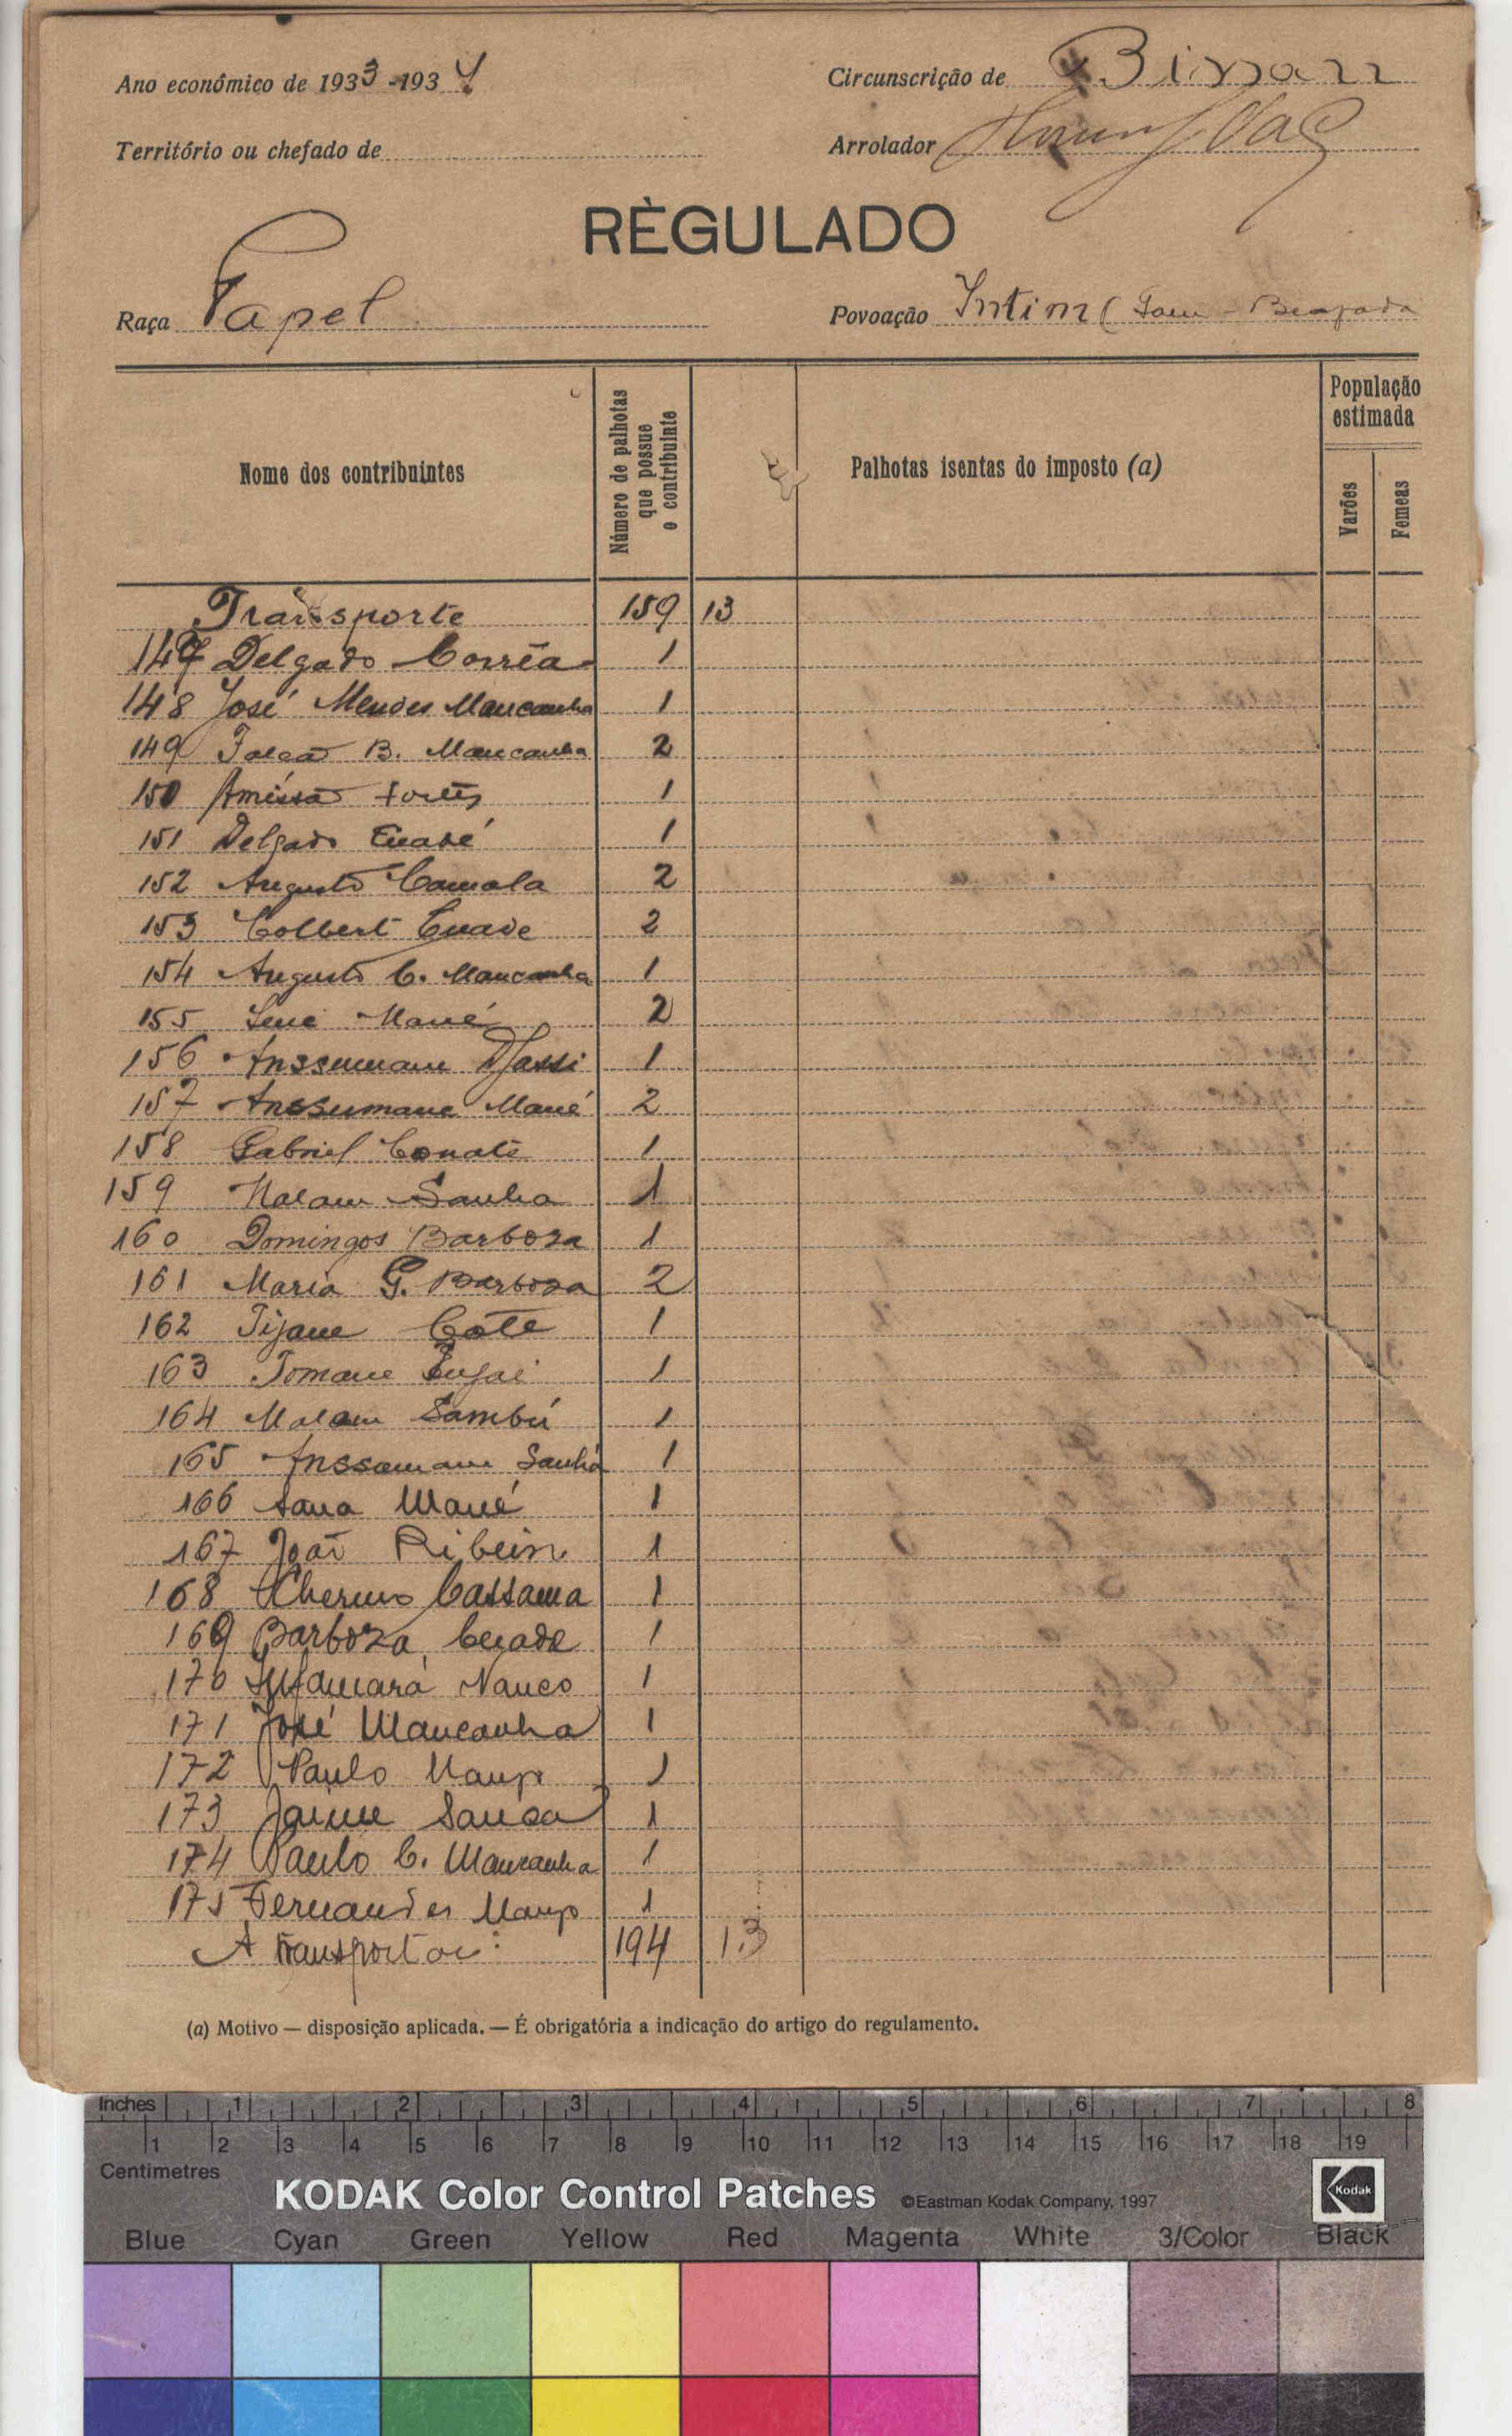 Ano económico de 1933-1934
Circunscrição de Bissau
Território ou chefado de
Arrolador
RÈGULADO
Raça Papel
Povoação Intim ( Tam - Beafada
Nome dos contribuintes
Número de palhotas que possue o contribuinte
Palhotas isentas do imposto (a)
População estimada
Varões
Femeas
Transporte 159 13
147 Delgado Corrêa 1
148 José Mendes Mancanha 1
149 B. Mancanha 2
150 1
151 Delgado 1
152 Augusto Camala 2
153 Colbert Cuade 2
154 Augusto C. Mancanha 1
155 Mané 2
156 Anssumane Djassi 1
157 Anssumane Mané 2
158 Gabriel Conaté 1
159 Malam Sanha 1
160 Domingos Barboza 1
161 Maria G. Barboza 2
162 Tijane Cóte 1
163 Tomane 1
164 Malam Sambú 1
165 Anssamane Sanhá 1
166 Sana Mané 1
167 João Ribeiro 1
168 Cherno Cassama 1
169 Barboza 1
170 Nanco 1
171 José Mancanha 1
172 Paulo 1
173 Jaime 1
174 Paulo C. Mancanha 1
175 Fernandes 1
A transportar: 194 13
(a) Motivo — disposição aplicada. — É obrigatória a indicação do artigo do regulamento.
Inches 1 2 3 4 5 6 7 8
1 2 3 4 5 6 7 8 9 10 11 12 13 14 15 16 17 18 19
Centimetres
KODAK Color Control Patches ©Eastman Kodak Company, 1997 Kodak
Blue Cyan Green Yellow Red Magenta White 3/Color Black